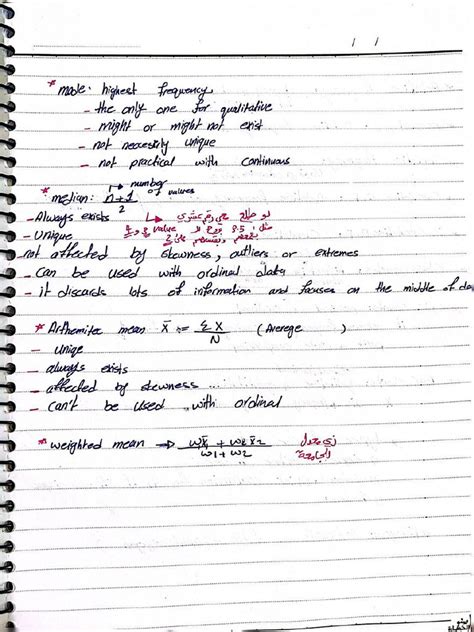 / /
* mode: highest frequency
- the only one for qualitative
- might or might not exist
- not necesirly unique
- not practical with continuous
* median: n+1 / 2 → number of values
- Always exists لو طلع معي رقم عشري
- Unique مثل 8.5 value
not affected by skewness, outliers or extremes
- can be used with ordinal data
- it discards lots of information and focuses on the middle of da
* Arthemitec mean x̄ := Σx / N (Averege )
- uniqe
- always exists
- affected by skewness ..
- can't be used with ordinal
* weighted mean ⇒ wx̄1 + w2x̄2 / w1 + w2 زي معدل الجامعة